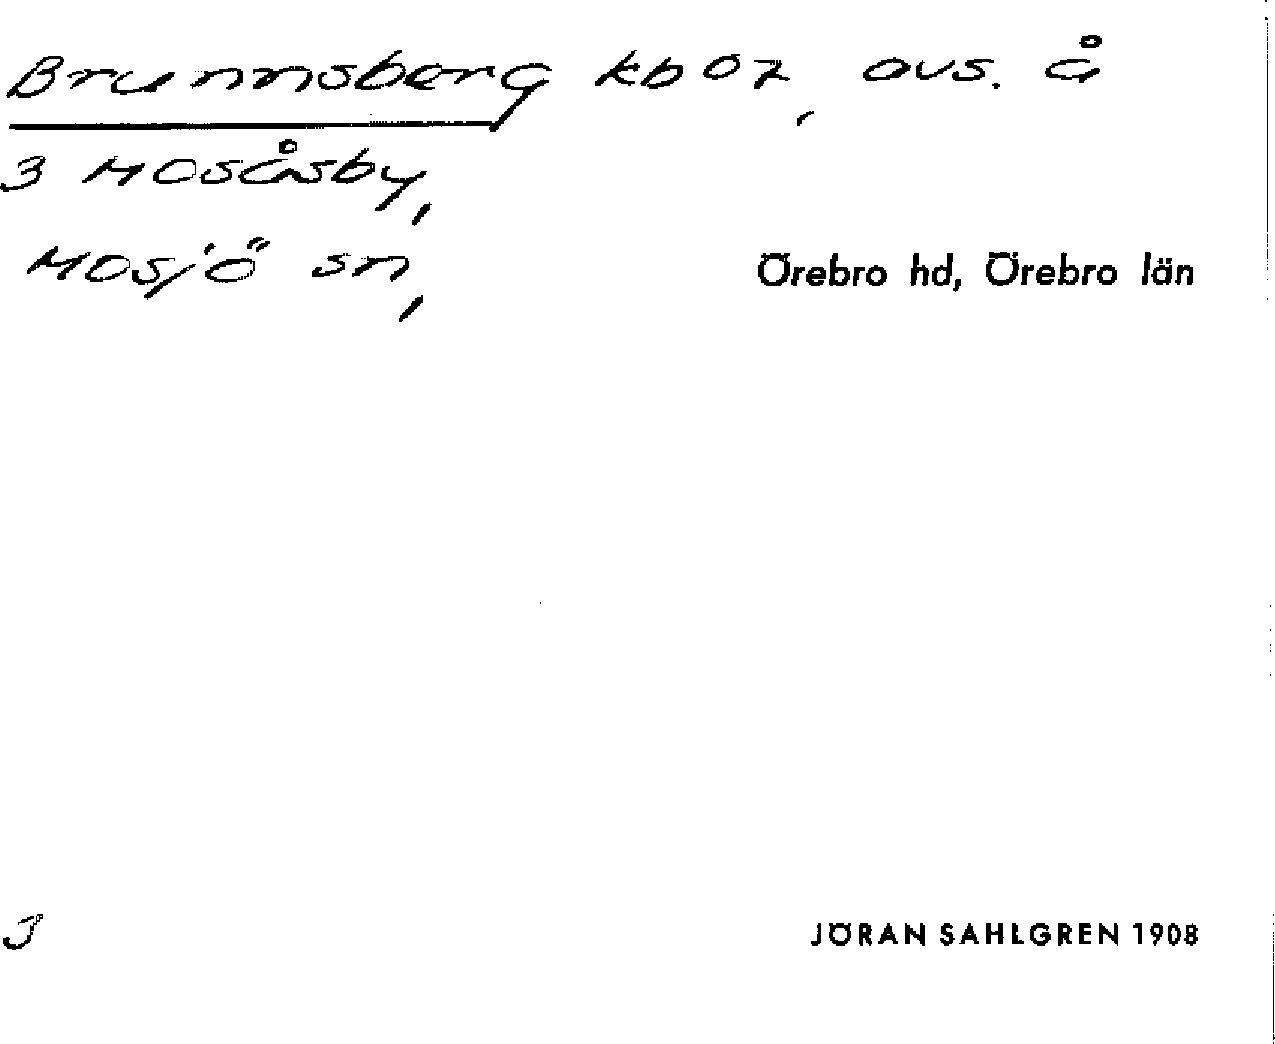 Brunnsberg kb 07, avs. å
3 Mosåsby,
Mosjö sn, Örebro hd, Örebro län
J
JÖRAN SAHLGREN 1908